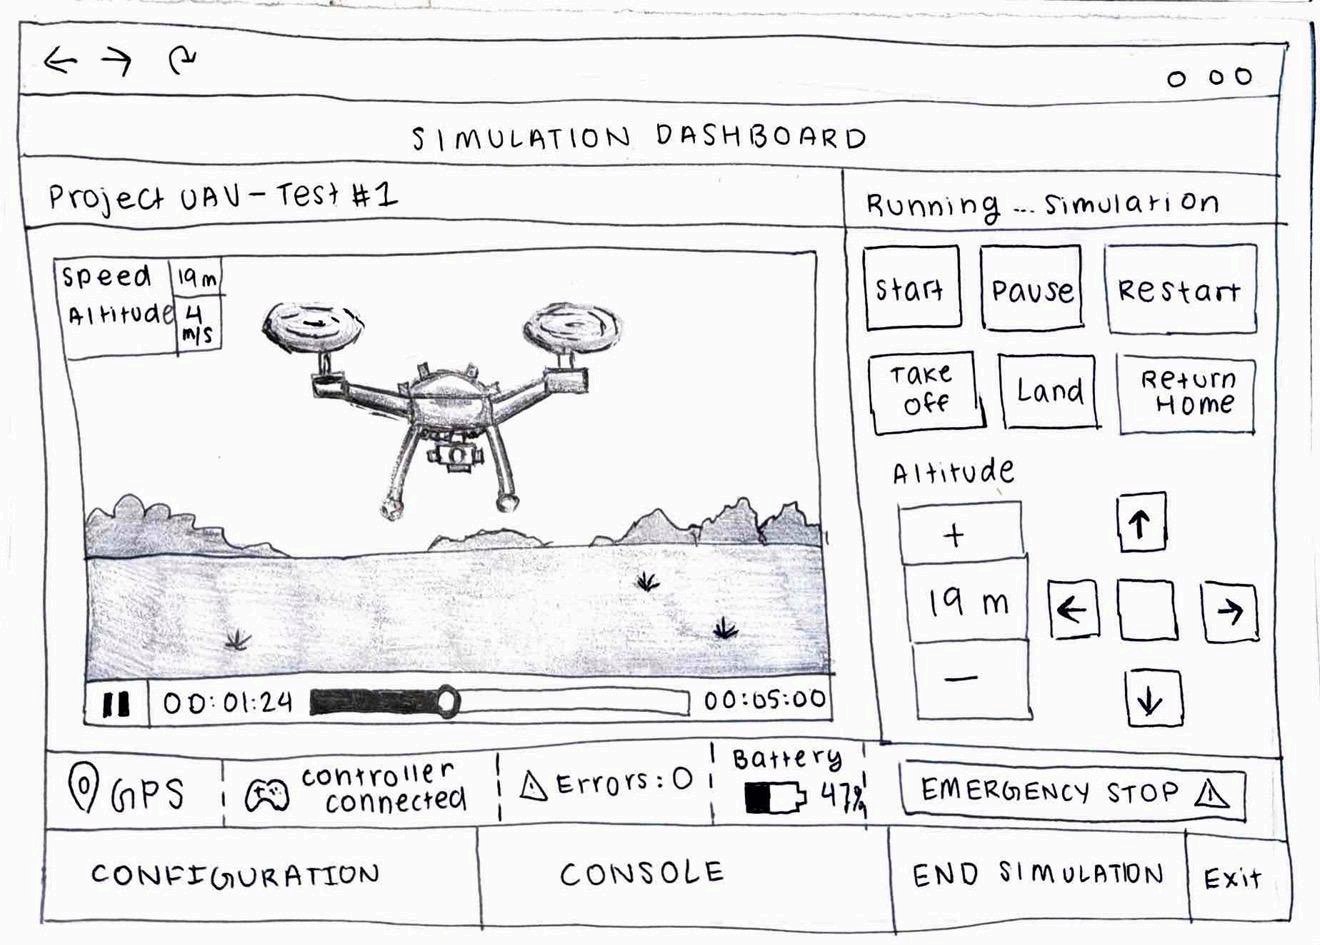 SIMULATION DASHBOARD
Project UAV - Test #1
Running ... Simulation
Speed 19 m
Altitude 4 m/s
Start
Pause
Restart
Take
Off
Land
Return
Home
Altitude
+
19 m
-
00:01:24
00:05:00
GPS
controller
connected
Errors: 0
Battery
47%
EMERGENCY STOP
CONFIGURATION
CONSOLE
END SIMULATION
Exit